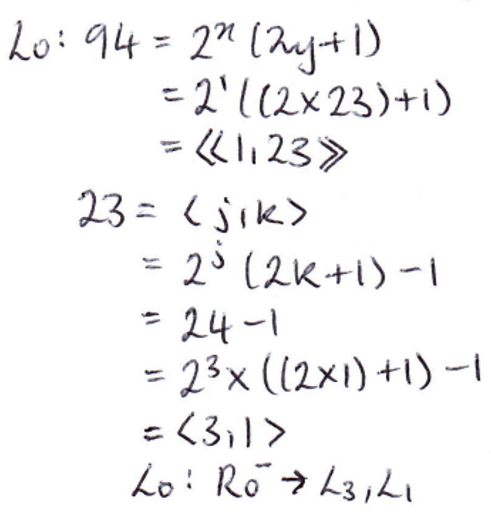 L₀: 94 = 2ˣ (2y+1)
= 2¹ ((2×23)+1)
= ⟪1,23⟫
23 = ⟨j,k⟩
= 2ʲ (2k+1) -1
= 24 -1
= 2³× ((2×1) +1) -1
= ⟨3,1⟩
L₀: R₀⁻ → L₃, L₁